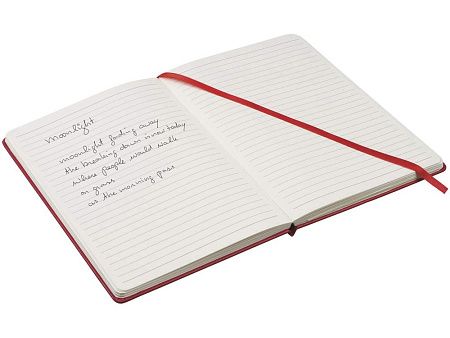 moonlight
moonlight fading away
the breaking down is now today
where people would walk
on grass
as the morning pass